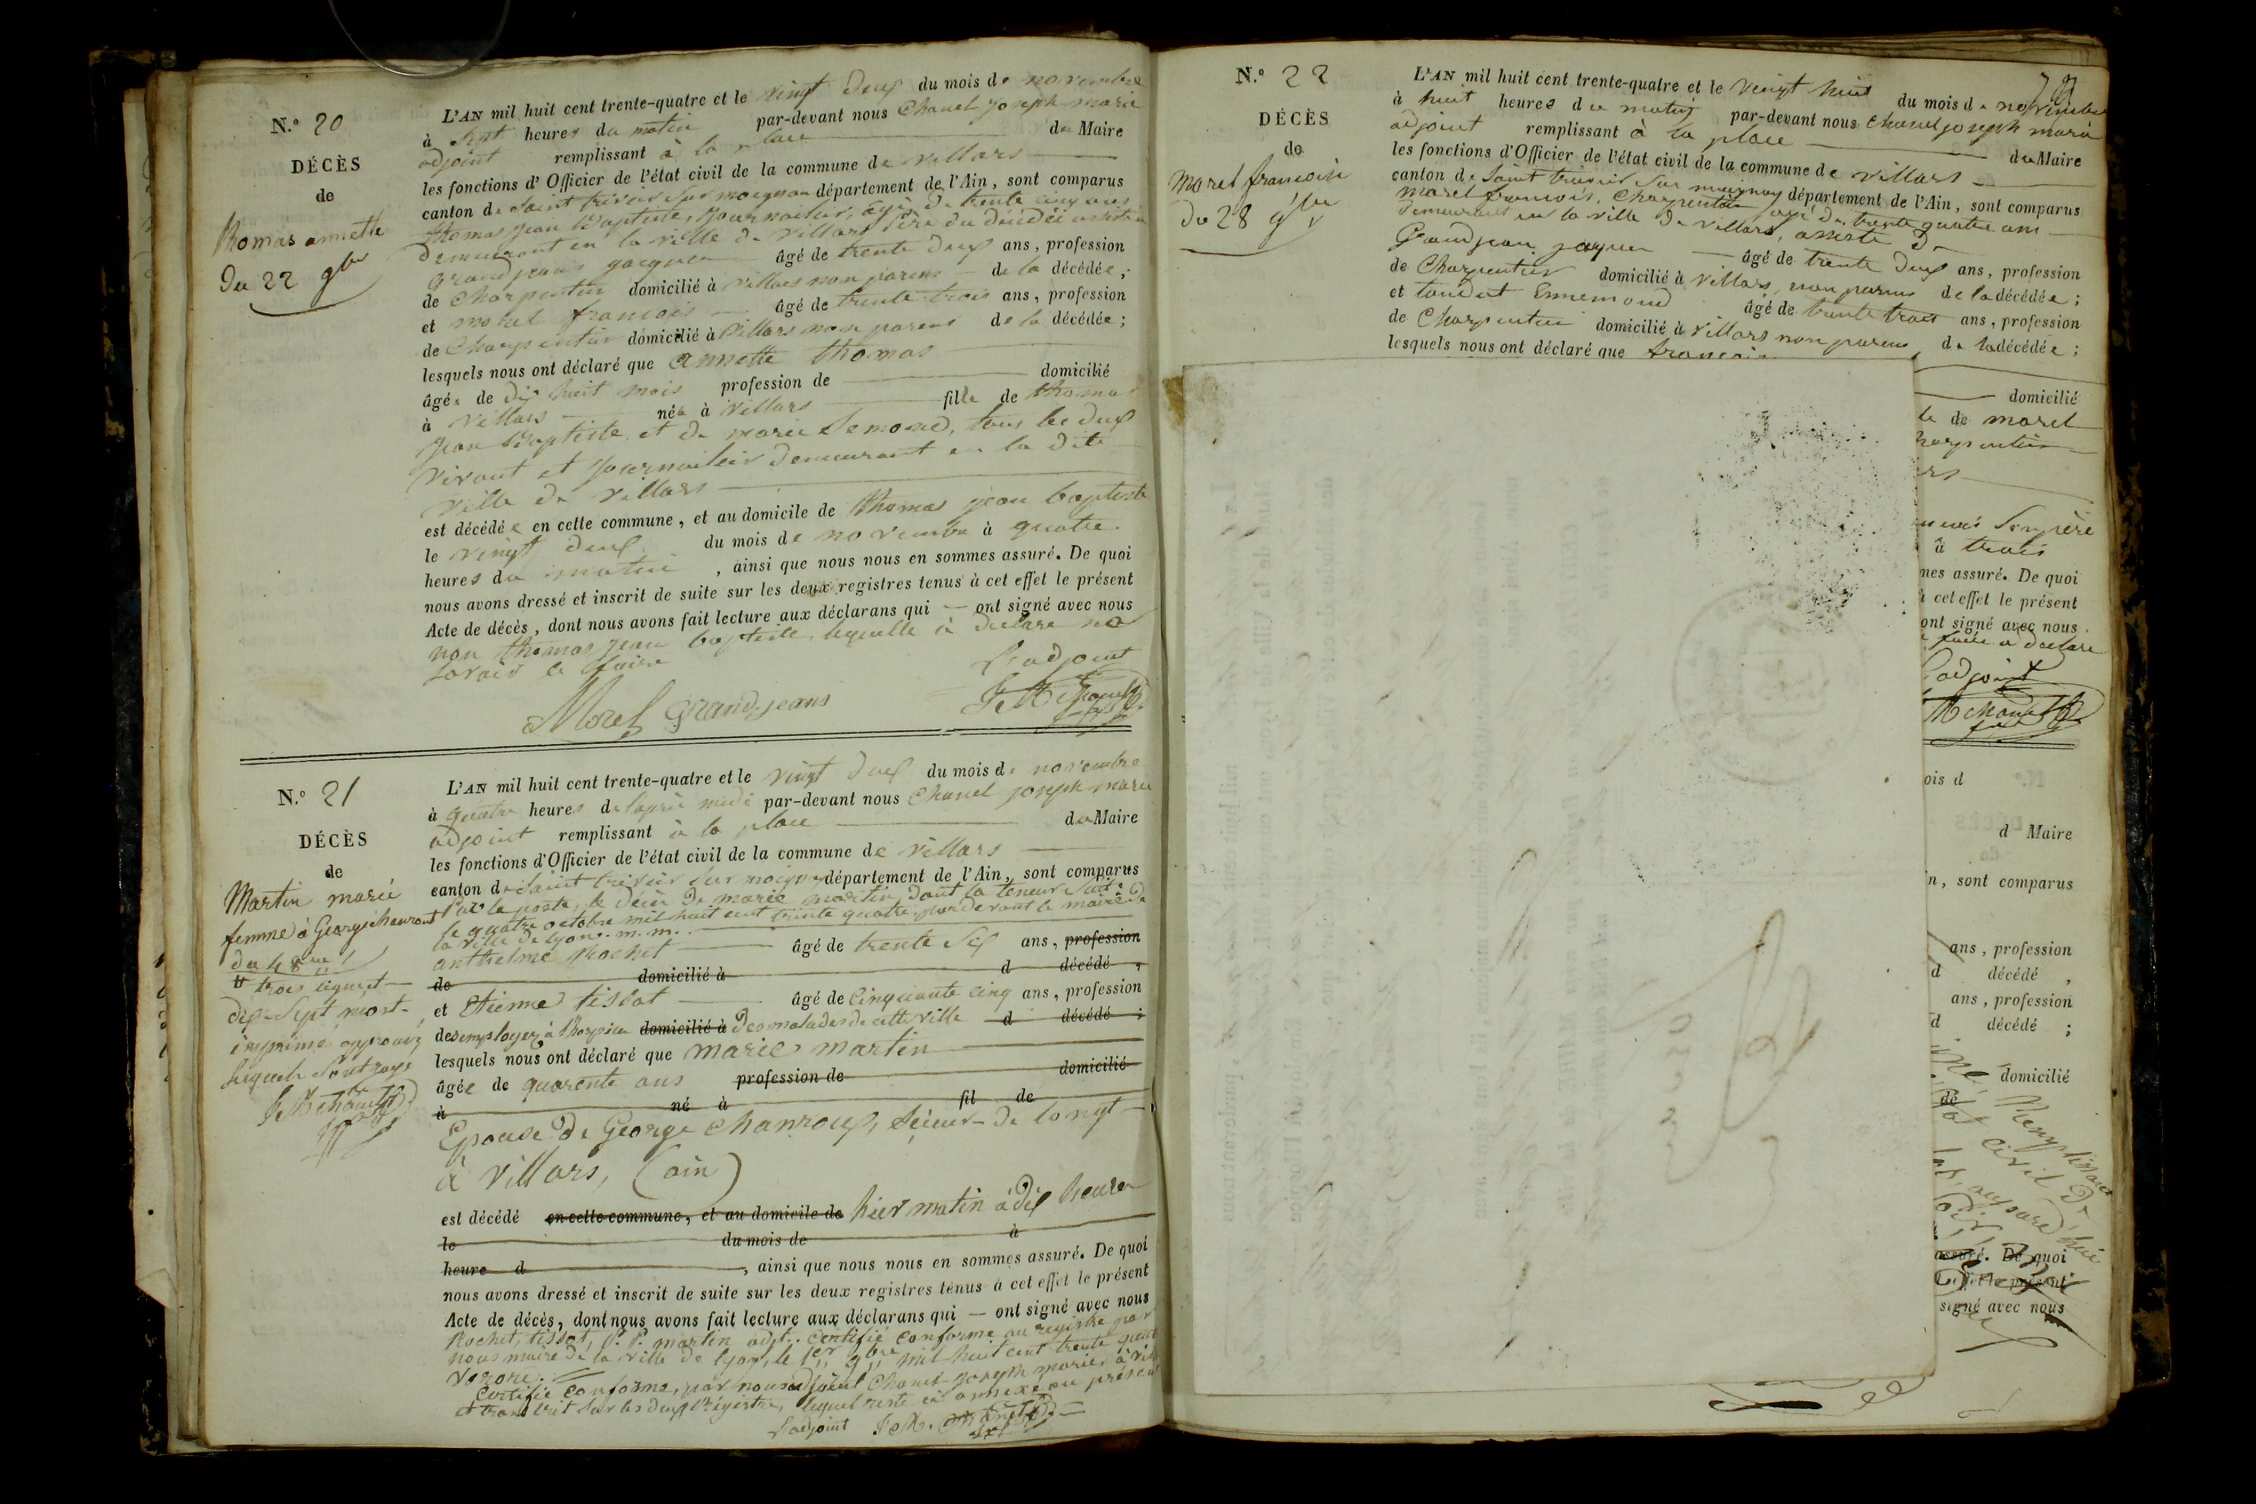 N.° 20
DÉCÈS
de
thomas annette
du 22 9bre
L'AN mil huit cent trente-quatre et le vingt deux du mois de novembre
à sept heures du matin par-devant nous Chanel joseph marie
adjoint remplissant à la place du Maire
les fonctions d'Officier de l'état civil de la commune de villars
canton de saint trivier sur moignan département de l'Ain, sont comparus
thomas jean Baptiste, journailier, agé de trente cinq ans
demeurant en la ville de villars père du décédé assisté de
grandjeans jacques âgé de trente deux ans, profession
de charpentier domicilié à villars non parens de la décédée;
et morel francois âgé de trente trois ans, profession
de Charpentier domicilié à villars non parens de la décédée;
lesquels nous ont déclaré que annette thomas
âgée de dix huit mois profession de domicilié
à villars née à villars fille de thomas
jean Baptiste et de marie Semond, tous les deux
vivant et journailier demeurant en la dite
ville de villars
est décédée en cette commune, et au domicile de thomas jean baptiste
le vingt deux du mois de novembre à quatre
heures du matin, ainsi que nous nous en sommes assuré. De quoi
nous avons dressé et inscrit de suite sur les deux registres tenus à cet effet le présent
Acte de décès, dont nous avons fait lecture aux déclarans qui — ont signé avec nous
non thomas jean baptiste, lequelle a déclaré ne
savoir le faire
L'adjoint
Morel grandjeans
N.° 21
DÉCÈS
de
Martin marie
femme à George
du 4 8bre
trois lignes et
dix-sept mots
imprimé approuvé
lequels sont rayé
L'AN mil huit cent trente-quatre et le vingt deux du mois de novembre
à quatre heures de laprès midi par-devant nous Chanel joseph marie
adjoint remplissant à la place du Maire
les fonctions d'Officier de l'état civil de la commune de villars
canton de saint trivier sur moignan département de l'Ain, sont comparus
Par le poste, le décès de marie martin dont la teneur suit.
le quatre octobre mil huit cent trente quatre par devant le maire de
la ville de lyon. m. m.
anthelme Rochet âgé de trente six ans, profession
de domicilié à d décédé,
et Etienne tissot âgé de cinquante cinq ans, profession
des employer à l'hospice domicilié à des malades de cette ville d décédé;
lesquels nous ont déclaré que marie martin
âgée de quarente ans profession de domicilié
à né à fil de
Epouse de George Chanroux, scieur de longt
à villars, (ain)
est décédé en cette commune, et au domicile de hier matin à dix heures
le du mois de à
heure d, ainsi que nous nous en sommes assuré. De quoi
nous avons dressé et inscrit de suite sur les deux registres tenus à cet effet le présent
Acte de décès, dont nous avons fait lecture aux déclarans qui — ont signé avec nous
Rochet, tissot, P. P. martin adjt. Certifié conforme au registre par
nous maire de la ville de lyon, le 1er 9bre mil huit cent trente quatre
Certifié conforme, par nous adjoint Chanel joseph marie, à
et transcrit sur les deux Régistres, lequel reste en annexe au présent
L'adjoint
N.° 22
DÉCÈS
de
morel francoise
du 28 9bre
L'AN mil huit cent trente-quatre et le vingt huit du mois de novembre
à huit heures du matin par-devant nous Chanel joseph marie
adjoint remplissant à la place du Maire
les fonctions d'Officier de l'état civil de la commune de villars
canton de saint trivier sur moignan département de l'Ain, sont comparus
morel francois, charpentier agé de trente quatre ans
demeurant en la ville de villars, assisté de
Grandjean jaques âgé de trente deux ans, profession
de Charpentier domicilié à villars, non parens de la décédée;
et tondut Ennemond âgé de trente trois ans, profession
de Charpentier domicilié à villars non parens de la décédée;
lesquels nous ont déclaré que
domicilié
de morel
son père
à trois
mes assuré. De quoi
à cet effet le présent
ont signé avec nous
a déclaré
L'adjoint
ois d
d Maire
n, sont comparus
ans, profession
d décédé,
ans, profession
d décédé;
domicilié
de
civil
assuré. De quoi
effet le présent
signé avec nous